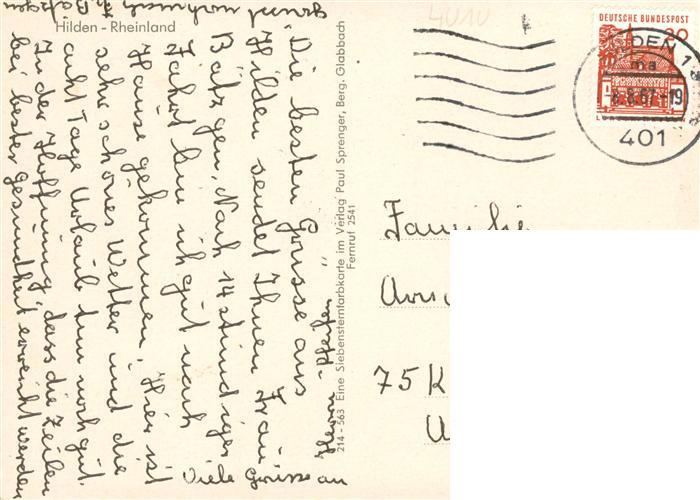 Hilden - Rheinland
4010
DEUTSCHE BUNDESPOST
20
DEN 1
ma
-8.8.67-19
401
Die besten Grüsse aus
Hilden sendet Ihnen Frau
Bätzgen, Nach 14 stündiger
Fahrt bin ich gut nach
Hause gekommen, Hier ist
sehr schönes Wetter und die
acht Tage Urlaub tun noch gut.
In der Hoffnung, dass die Zeilen
bei bester Gesundheit erreicht werden
Viele Grüsse an
214 - 563 Eine Siebensternfarbkarte im Verlag Paul Sprenger, Berg. Gladbach
Fernruf 2541
Familie
75 K